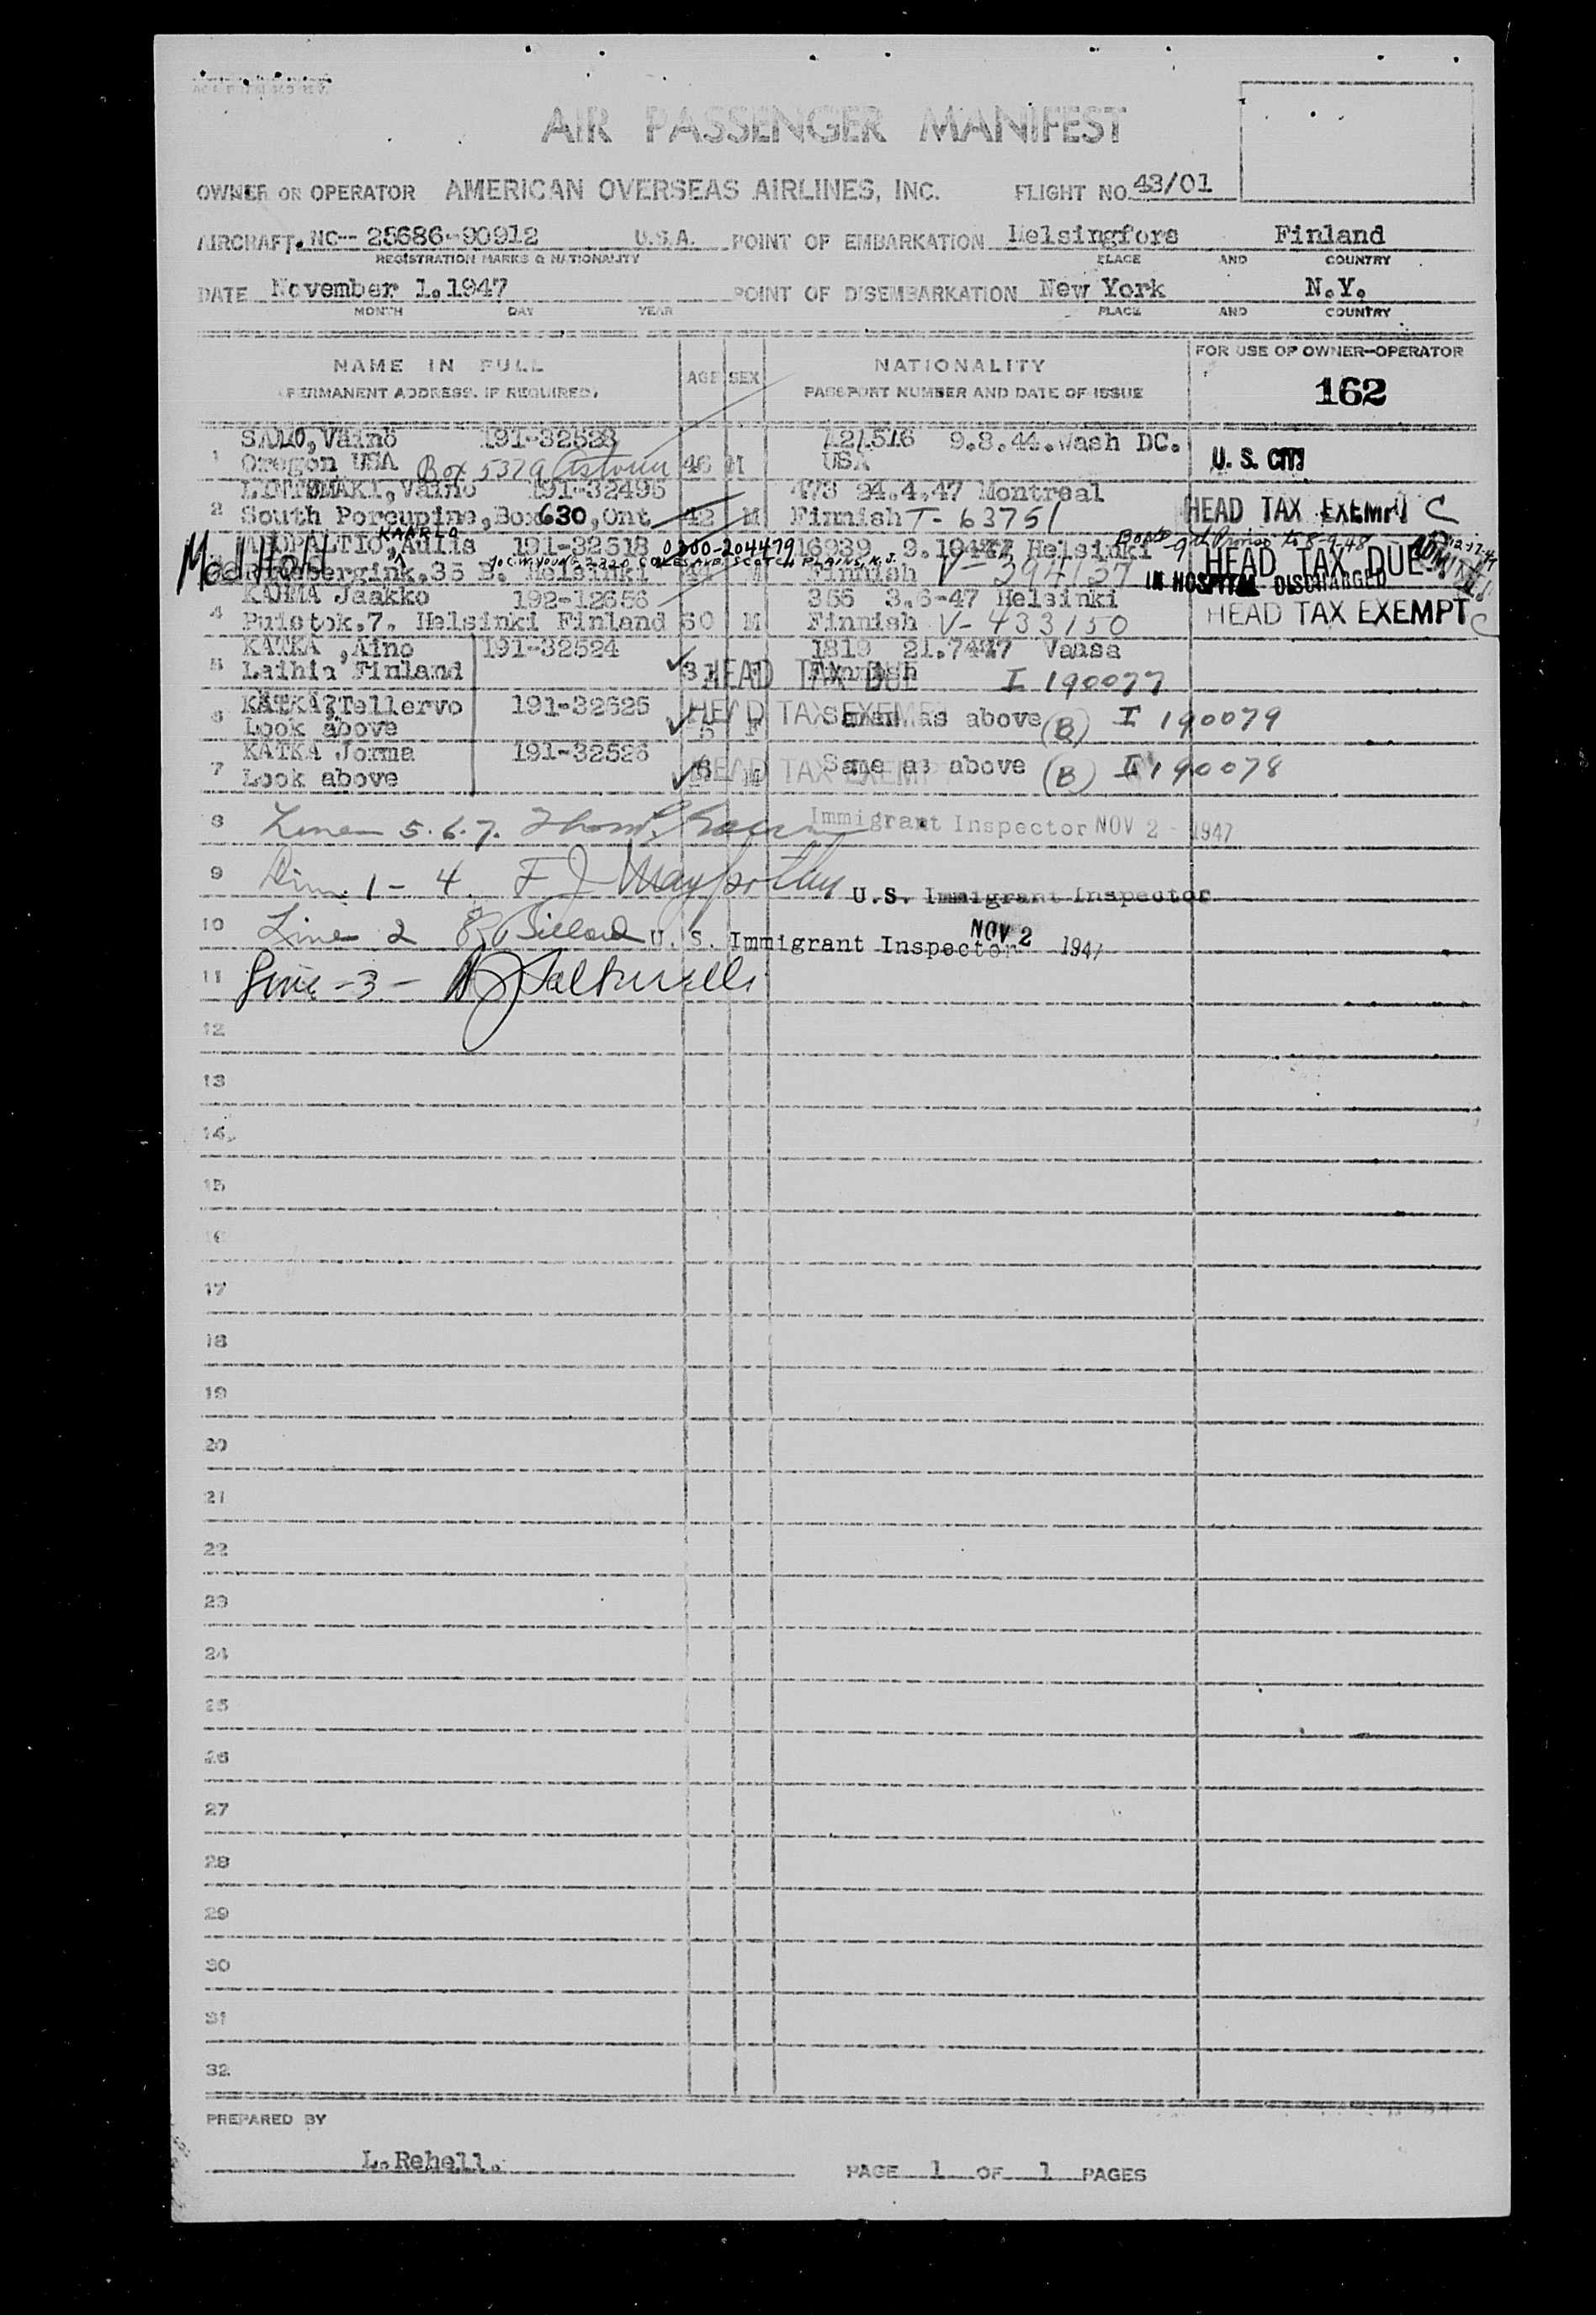 AIR PASSENGER MANIFEST
OWNER OR OPERATOR AMERICAN OVERSEAS AIRLINES, INC. FLIGHT NO. 43/01
AIRCRAFT. NC-- 25686-90912 U.S.A. POINT OF EMBARKATION Helsingfors Finland
REGISTRATION MARKS & NATIONALITY PLACE AND COUNTRY
DATE November 1.1947 POINT OF DISEMBARKATION New York N.Y.
MONTH DAY YEAR PLACE AND COUNTRY
NAME IN FULL AGE SEX NATIONALITY FOR USE OF OWNER-OPERATOR
(PERMANENT ADDRESS, IF REQUIRED) PASSPORT NUMBER AND DATE OF ISSUE 162
SALO, Väinö 191-32528 9.8.44. Wash DC.
1 Oregon USA Box 537a Astoria 46 M USA U. S. CITI
Väinö 191-32495 473 24.4.47 Montreal
2 South Porcupine, Box 630, Ont 42 M Finnish T- 63751 HEAD TAX EXEMPT C
KAARLO
Aulis 191-32518 0300-204479 16939 Helsinki HEAD TAX DUE
Med Hold 35 B. Helsinki C.W. YOUNG 2220 COLES AVE. SCOTCH PLAINS, N.J. Finnish V- 394137 IN HOSPITAL DISCHARGED
KAHMA Jaakko 192-12656 355 3.6-47 Helsinki
4 Puistok.7. Helsinki Finland 50 M Finnish V- 433150 HEAD TAX EXEMPT C
KATKA, Aino 191-32524 1819 Vaasa
5 Laihia Finland HEAD TAX DUE Finnish I 190077
KATKA, Tellervo 191-32525 HEAD TAX EXEMPT
6 Look above 5 F Same as above (B) I 190079
KATKA Jorma 191-32526
7 Look above M HEAD TAX EXEMPT Same as above (B) I 190078
8 Line 5.6.7. Immigrant Inspector NOV 2 - 1947
9 1 - 4. F J U.S. Immigrant Inspector
10 Line 2 Billard U. S. Immigrant Inspector NOV 2 1947
11 Line - 3 -
12
13
14
15
16
17
18
19
20
21
22
23
24
25
26
27
28
29
30
31
32
PREPARED BY
L. Rehell. PAGE 1 OF 1 PAGES